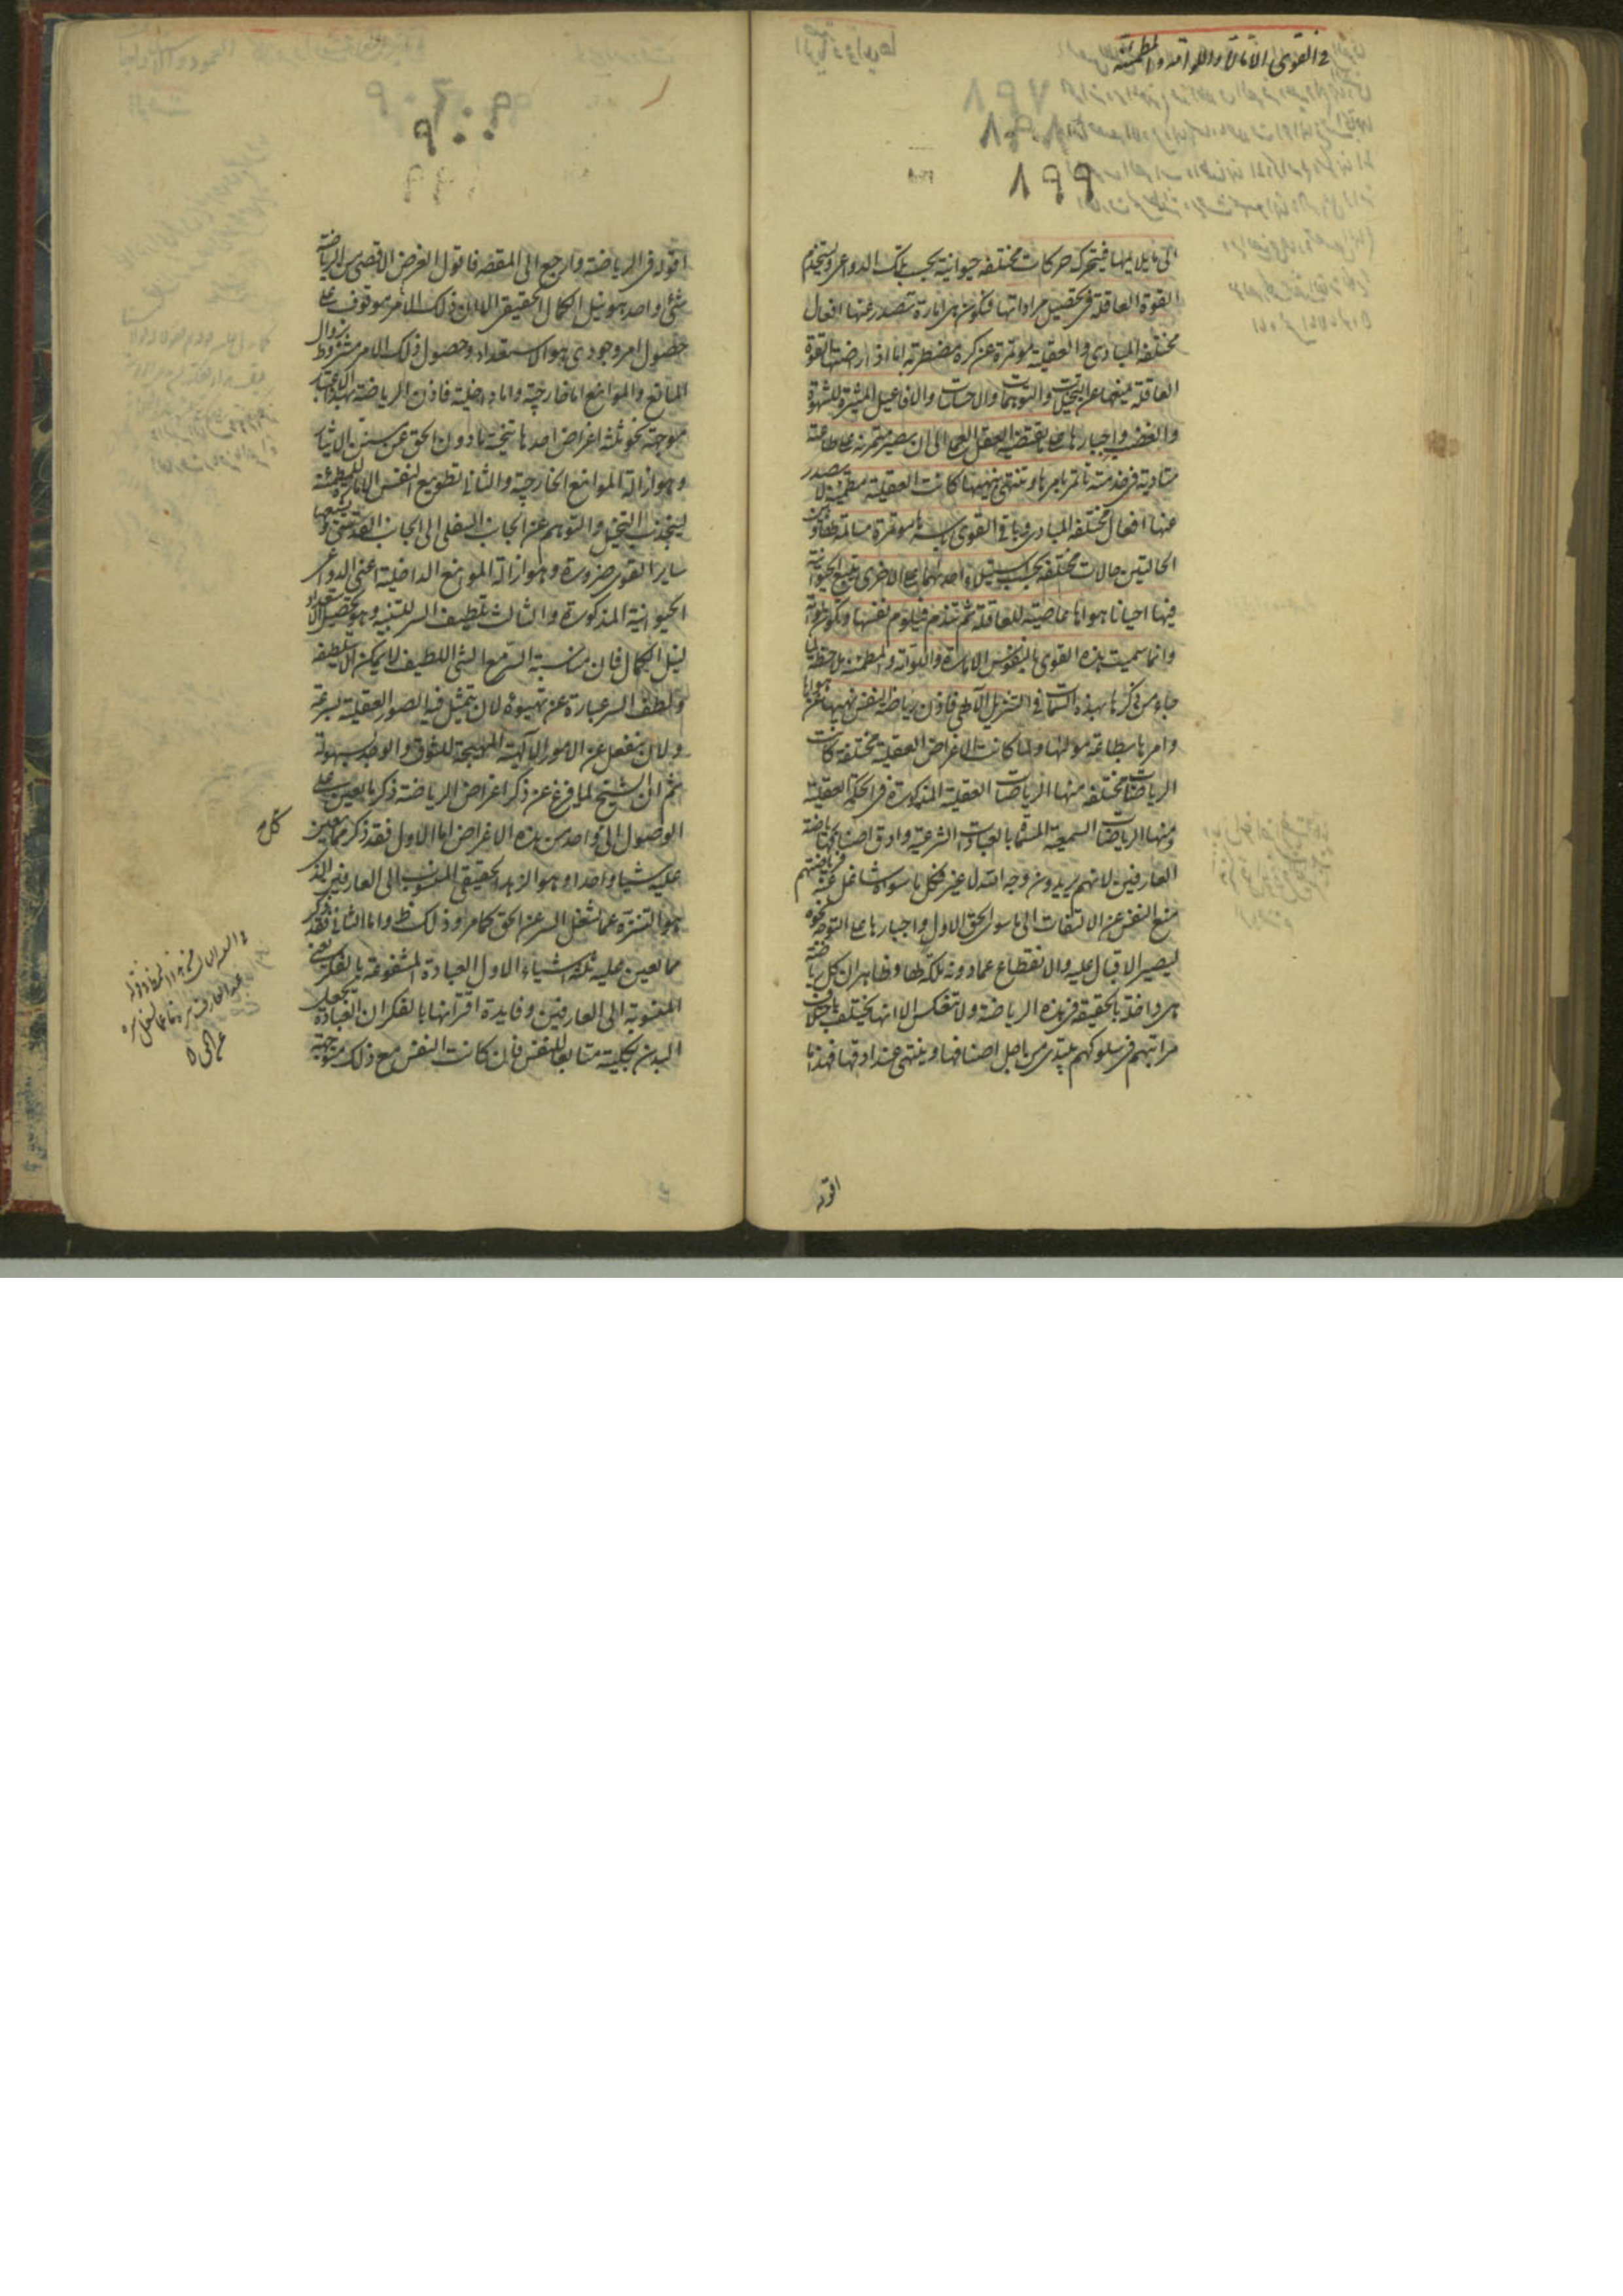 في القوى الامارة واللوامة والمطمئنة
١٩٩
الى ما يلايمها فيتحركه حركات مختلفه حيوانية بحسب تلك الدواعى ويستخدم
القوة العاقلة فى تحصيل مراداتها فيكون هى امارة تصدر عنها افعال
مختلفه المبادى والعقلية مؤتمرة عن كره مضطربة اما اذا راضتها القوة
العاقلة بمنعها عن التخيلات والتوهمات والاحساسات والافاعيل المثيرة للشهوة
والغضب واجبارها على ما يقتضيه العقل العملى الى ان يصير متمرنة على طاعته
متأدبة فى خدمته تأتمر بامرها وتنتهى بنهيها كانت العقلية مطمئنة لا يصدر
عنها افعال مختلفه المبادى وباقى القوى باسرها مؤتمرة مسالمة لها وبين
الحالتين حالات مختلفه بحسب استيلاء احدهما على الاخرى يتبع الحيوانية
فيها احيانا هواها عاصية للعاقلة ثم تندم فيلوم نفسها ويكون لوامة
وانما سميت هذه القوى بالنفوس الامارة واللوامة والمطمئنة ملاحظة لما
جاء من ذكرها بهذه السمات فى التنزيل الالهى فاذن رياضة النفس نهيها عن هواها
وامرها بطاعة مولاها ولما كانت الاغراض العقلية مختلفة كانت
الرياضات مختلفه منها الرياضات العقلية المذكورة فى الحكمة العقلية
ومنها الرياضات السمعية المسماة بالعبادات الشرعية وادق اصنافها رياضة
العارفين لانهم يريدون وجه الله لا غير فكل ما سواه شاغل عنه فرياضتهم
منع النفس عن الالتفات الى ما سوى الحق الاول واجبارها على التوجه نحوه
ليصير الاقبال عليه والانقطاع عما دونه ملكة لها وظاهر ان كل رياضة
هى داخلة بالحقيقة فى هذه الرياضة ولا تنعكس الا انها يختلف باختلاف
مراتبهم فى سلوكهم يبتدى من اجل اصنافها وينتهى عند ادقها فهذا ما
اقوله
٩٠٠
اقوله فى الرياضة وارجع الى المقصد فاقول الغرض الاقصى من الرياضة
شئ واحد هو نيل الكمال الحقيقى الا ان ذلك الامر موقوف على
حصول امر وجودى هو الاستعداد وحصول ذلك الامر مشروط بزوال
المانع والموانع اما خارجية واما داخلية فاذن الرياضة بهذا الاعتبار
موجهة نحو ثلثة اغراض احدها تنحية ما دون الحق عن سنن الايثار
وهو ازالة الموانع الخارجية والثانى تطويع النفس الامارة للمطمئنة
لينجذب التخيل والتوهم عن الجانب السفلى الى الجانب القدسى ويتبعهما
ساير القوى ضرورة وهو ازالة الموانع الداخلية اعنى الدواعى
الحيوانية المذكورة والثالث تلطيف السر للتنبيه وهو تحصيل الاستعداد
لنيل الكمال فان مناسبة السر مع الشئ اللطيف لا يمكن الا بتلطيفه
ولطف السر عبارة عن تهيؤه لان يتمثل فيه الصور العقلية بسرعة
ولان ينفعل عن الامور الالهية المهيجة للشوق والوجد بسهولة
ثم ان الشيخ لما فرغ عن ذكر اغراض الرياضة ذكر ما يعين على
الوصول الى كل واحد من هذه الاغراض اما الاول فقد ذكر مما يعين
عليه شيئا واحدا وهو الزهد الحقيقى المنسوب الى العارفين الذى
هو التنزه عما يشغل السر عن الحق كما مر وذلك ظ واما الثانى فقد ذكر
مما يعين عليه ثلثة اشياء الاول العبادة المشفوعة بالفكر يعنى
المنسوبة الى العارفين وفايدة اقترانها بالفكر ان العبادة تجعل
البدن بكليته متابعا للنفس فان كانت النفس مع ذلك متوجهة
كل